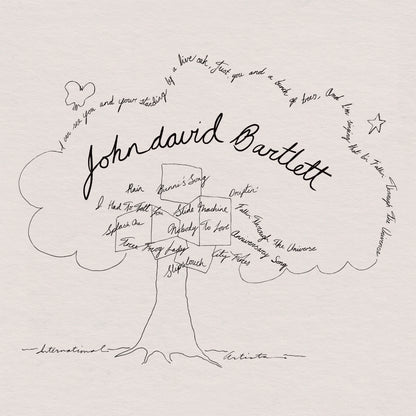 I can see you and your standing by a live oak, Just you and a book of bees, And I'm singing this to Fallen Through The Universe
John david Bartlett
Rain
Benni's Song
Drifter
I Had To Tell You
Slide Machine
Fallin Through The Universe
Splash One
Nobody To Love
Anniversary Song
Three Frog Ladys
City Notes
Slipslouch
International Artists